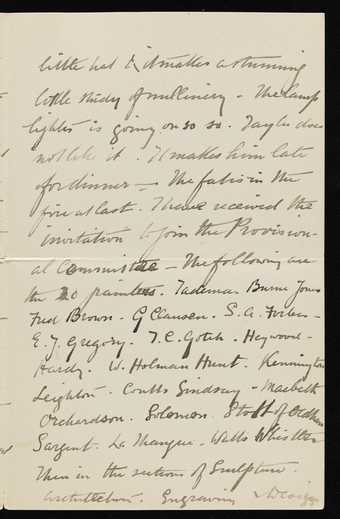 little hat & it makes a stunning
little study of millinery - The lamp
lighter is going on so so. Tayler does
not like it. It makes him late
for dinner - The fat is in the
fire at last. I have received the
invitation to join the Provision-
al Committee - The following are
the 20 painters. Tadema. Burne Jones
Fred Brown. G Clausen. S. A. Forbes -
E. J. Gregory. T. C. Gotch. Haywood -
Hardy. W. Holman Hunt. Kennington
Leighton. Coutts Lindsay - Macbeth
Orchardson. Solomon. Stott of Oldham
Sargent. La Thangue. Watts Whistler
Then in the sections of Sculpture.
Architecture. Engraving & Design